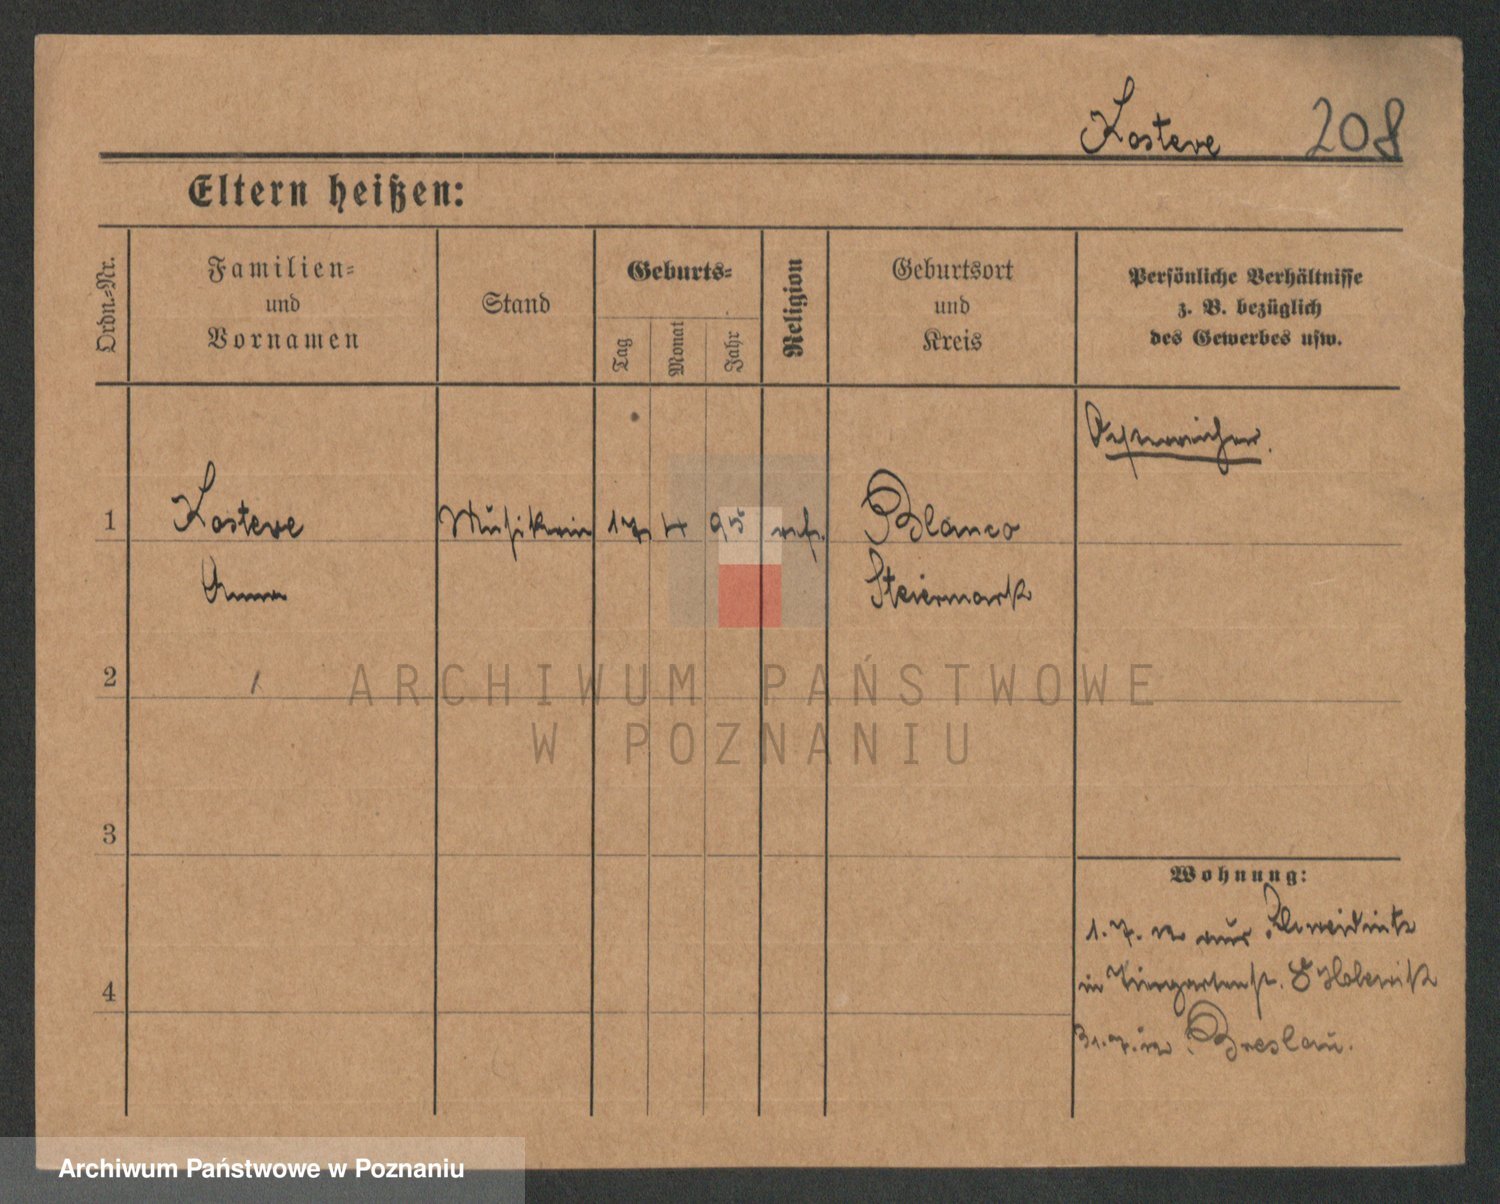 Kosteve 208
Eltern heißen:
Ordn.-Nr.
Familien-
und
Vornamen
Stand
Geburts-
Tag
Monat
Jahr
Religion
Geburtsort
und
Kreis
Persönliche Verhältnisse
z. B. bezüglich
des Gewerbes usw.
Österreicher.
1 Kosteve Musikerin 17 4 95 ref. Blanco
Anna Steiermark
2
3
4
Wohnung:
1. 7. aus Schweidnitz
in Tiergartenst. 8
31. 7. in Breslau.
ARCHIWUM PAŃSTWOWE
W POZNANIU
Archiwum Państwowe w Poznaniu